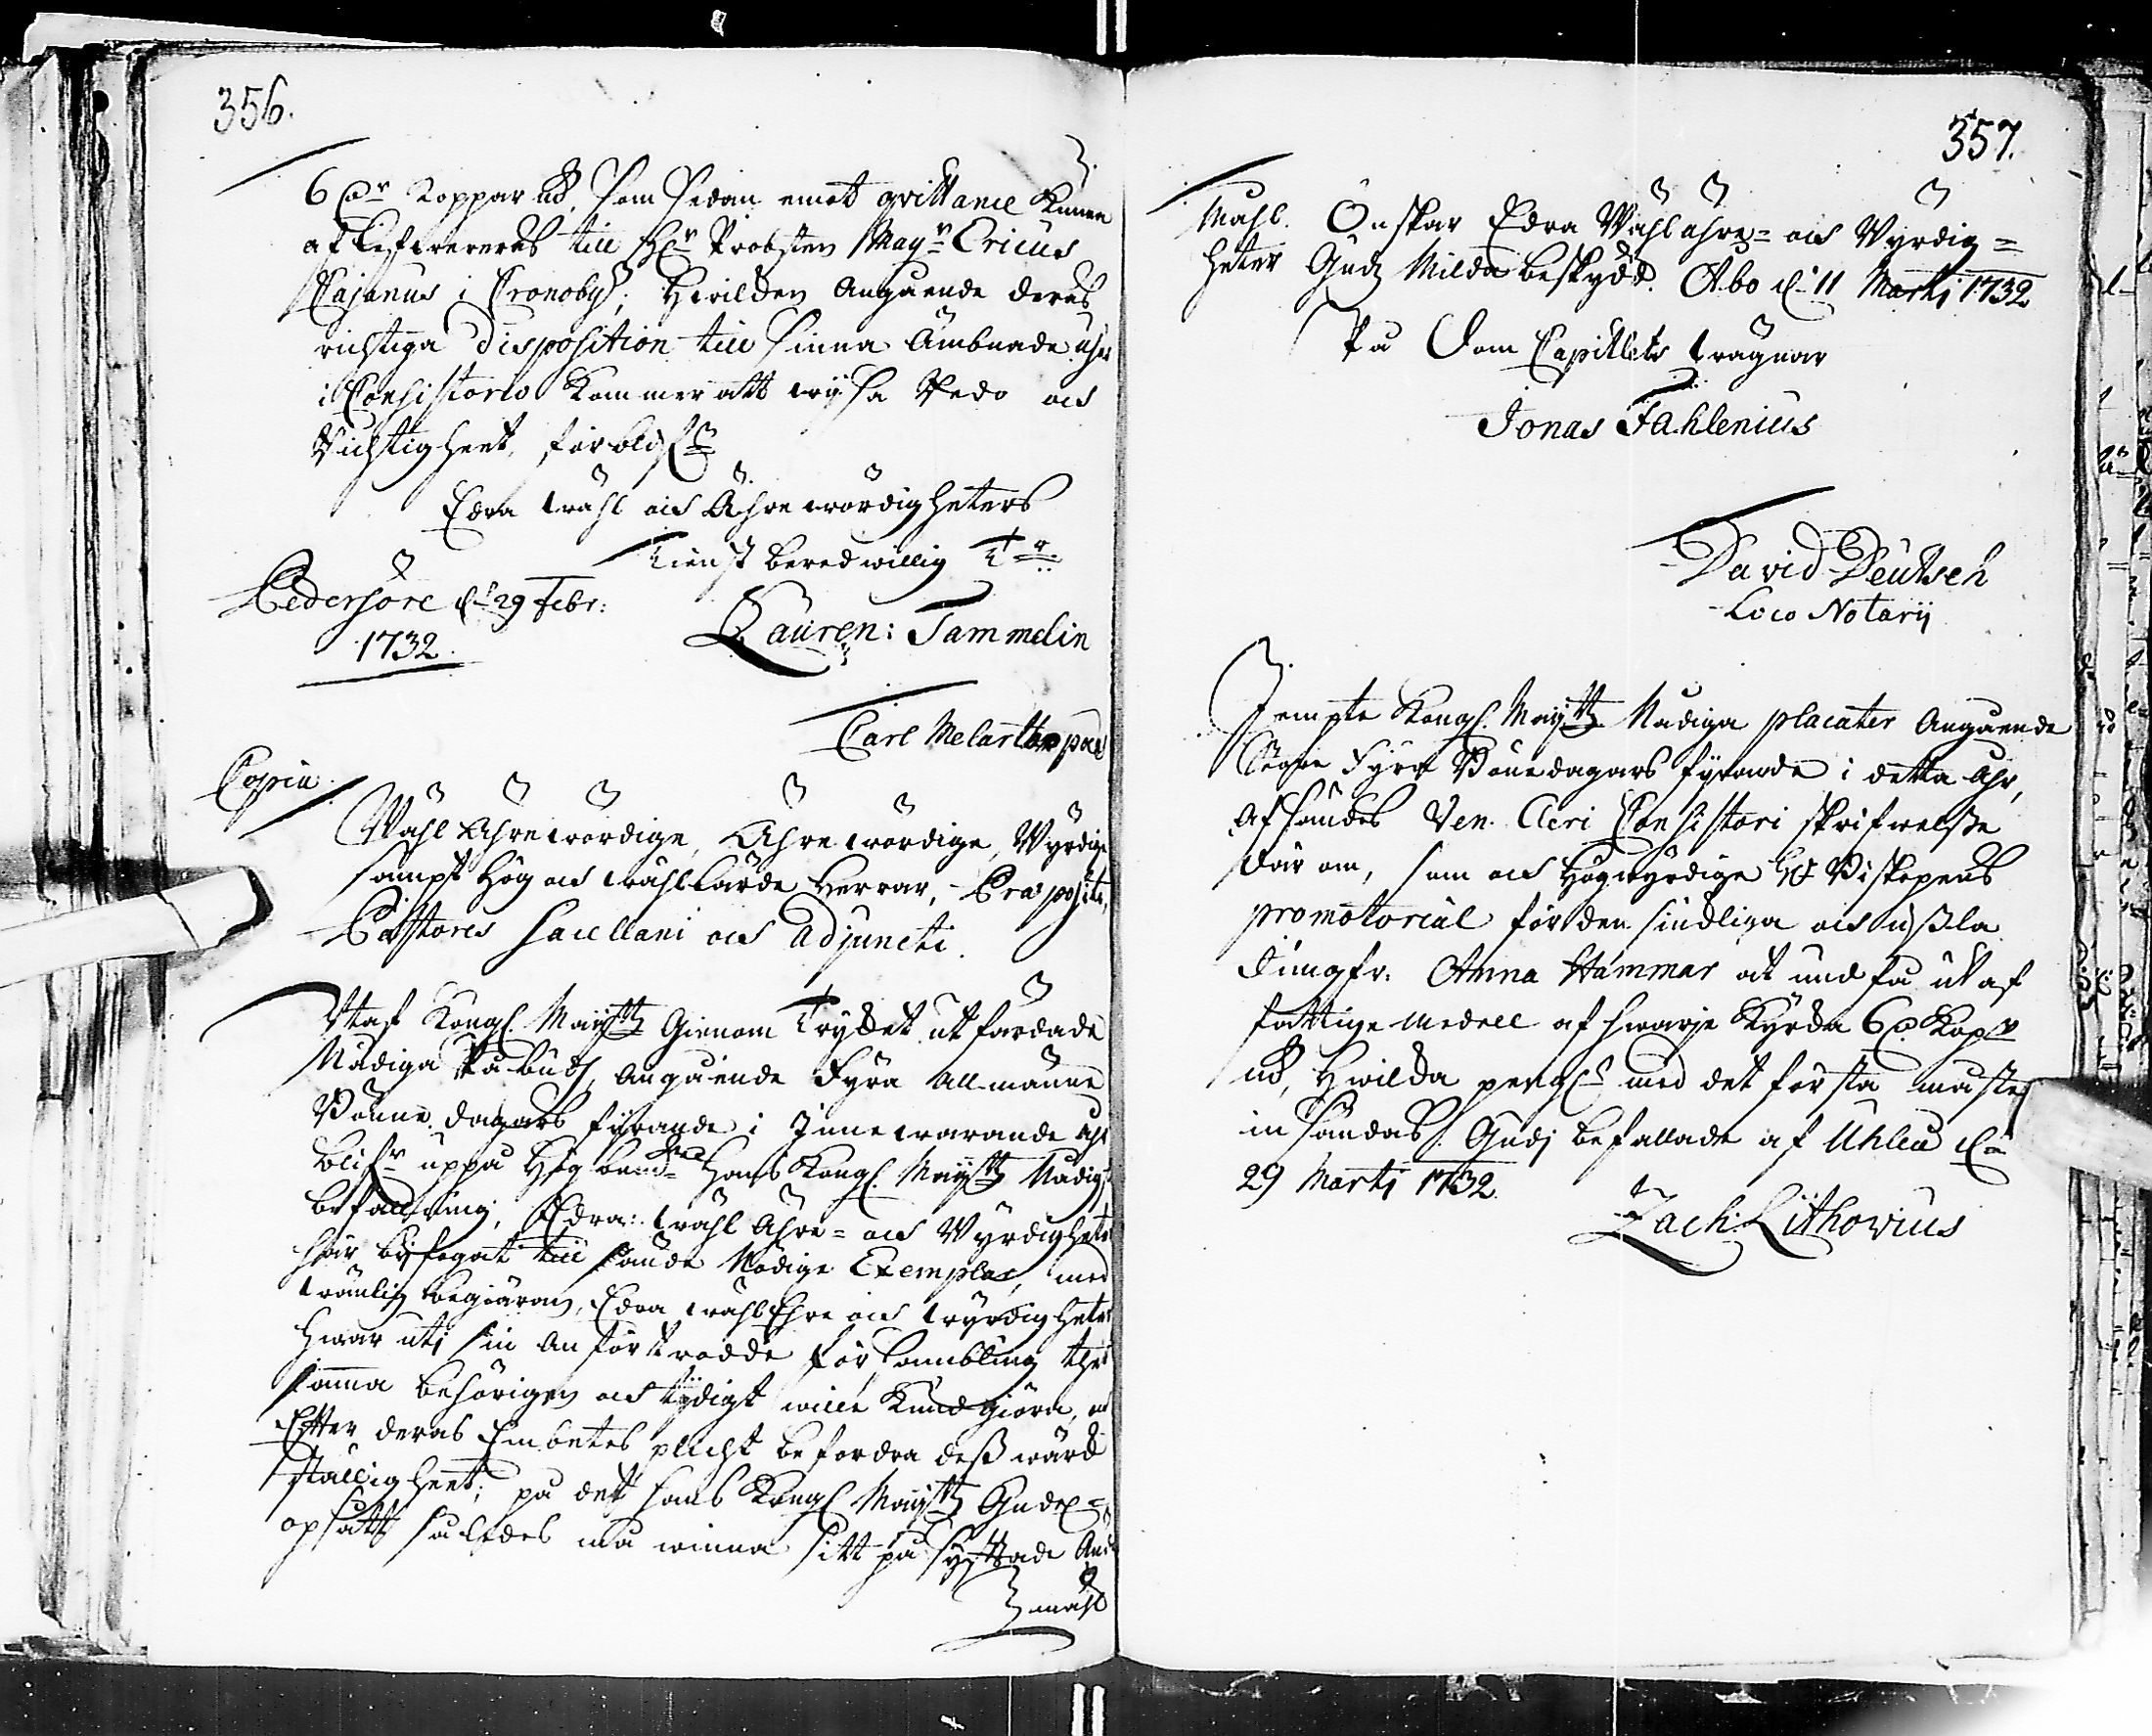 356.
6 Öre Koppar mt, som sedan emot qvittance kunna
aflefwereras till H:r Probsten Mag:r Ericus
Cajanus i Cronoby; hwilken angående deras
richtiga disposition till sinna ämbnade uhr
i Consistorio kommer att wijsa Redo och
Richtigheet, förblif:r
Edra wähl och Ährewördigheters
Tienst beredwillig T:r
Pedersöre d. 29 Febr:
1732.
Lauren: Tammelin
Carl Melartopæus
Copia.
Wähl Ährewördige, Ährewördige, Wyrdige
sampt Hög och wählärde Herrar, Præpositi,
Pastores Sacellani och Adjuncti.
Utaf Kongl. Maij:ttz Gienom Trycket utfärdade
Nådiga Påbudh, angående Fyra allmänne
Bönnedagars fijrande i Innewarande åhr
blifr uppå Högbem:te Hans Kongl. Maij:ttz Nådige
befallning, Edra wähl Ähre= och Wyrdigheter
här bijfogat till sände Nödige Exemplar, med
wänlig begiäran, Edra wähl Ehre och wyrdigheter
hwar uti sin anförtrodde försambling the
samma behörigen och tydigt wille Kundgiöra, och
Efter deras Embetes plicht befordra dess wärck
ställigheet; på det hans Kongl. Maij:ttz Gudel=
opsått således må winna sitt påsyfftade Ända
mähl
357.
Mahl. Önskar Edra Wähl ähre= och Wyrdig=
heter Gudz Milda beskydd. Åbo d. 11 Martij 1732
På Dom Capitlets wägnar
Jonas Fahlenius
David Deutsch
Loco Notarij
Jempte Kongl. Maij:ttz Nådiga placater Angående
Stora Fyra Bönedagars fyrande i detta Åhr,
afsändes Ven. Cleri Consistori skrifwelsse
där om, som och Högwyrdige H:r Biskopens
promotorial för den siuckliga och ussla
Jungfr: Anna Hammar at undfå ut af
fattige medell af hwarje Kyrcka 6 ö. Kop:r
mt, hwilka peng:r med det första måste
insändas. Gudj befallade af Uhleå d.
29 Martj 1732.
Zach: Lithovius